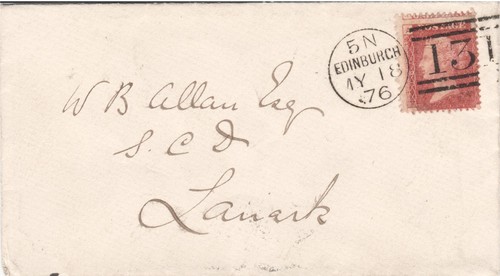 POSTAGE
5 N
EDINBURGH
MY 18
76
131
W B Allan Esq
S. C. D
Lanark